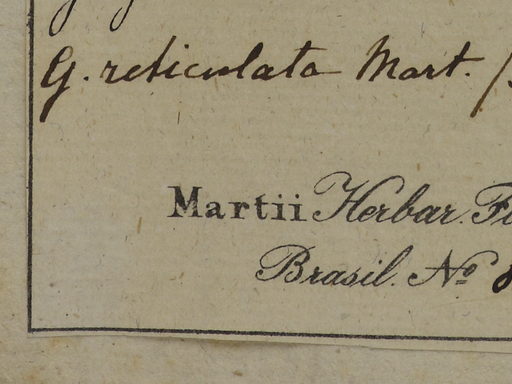 G. reticulata Mart.
Martii Herbar. Fl
Brasil. No